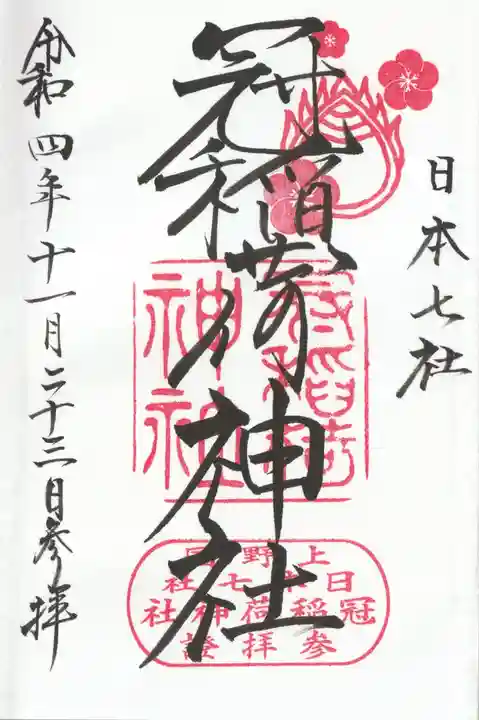 日本七社
冠稲荷神社
令和四年十一月二十三日参拝
冠稲荷
神社
上野国
日本七社
冠稲荷神社
参拝證